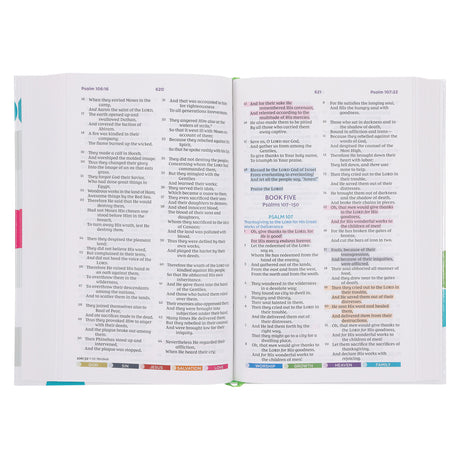 Psalm 106:16
620
16 When they envied Moses in the
camp,
And Aaron the saint of the LORD,
17 The earth opened up and
swallowed Dathan,
And covered the faction of
Abiram.
18 A fire was kindled in their
company;
The flame burned up the wicked.
19 They made a calf in Horeb,
And worshiped the molded image.
20 Thus they changed their glory
Into the image of an ox that eats
grass.
21 They forgot God their Savior,
Who had done great things in
Egypt,
22 Wondrous works in the land of Ham,
Awesome things by the Red Sea.
23 Therefore He said that He would
destroy them,
Had not Moses His chosen one
stood before Him in the
breach,
To turn away His wrath, lest He
destroy them.
24 Then they despised the pleasant
land;
They did not believe His word,
25 But complained in their tents,
And did not heed the voice of the
LORD.
26 Therefore He raised His hand in
an oath against them,
To overthrow them in the
wilderness,
27 To overthrow their descendants
among the nations,
And to scatter them in the lands.
28 They joined themselves also to
Baal of Peor,
And ate sacrifices made to the dead.
29 Thus they provoked Him to anger
with their deeds,
And the plague broke out among
them.
30 Then Phinehas stood up and
intervened,
And the plague was stopped.
31 And that was accounted to him
for righteousness
To all generations forevermore.
32 They angered Him also at the
waters of strife,
So that it went ill with Moses on
account of them;
33 Because they rebelled against His
Spirit,
So that he spoke rashly with his lips.
34 They did not destroy the peoples,
Concerning whom the LORD had
commanded them,
35 But they mingled with the
Gentiles
And learned their works;
36 They served their idols,
Which became a snare to them.
37 They even sacrificed their sons
And their daughters to demons,
38 And shed innocent blood,
The blood of their sons and
daughters,
Whom they sacrificed to the idols
of Canaan;
And the land was polluted with
blood.
39 Thus they were defiled by their
own works,
And played the harlot by their
own deeds.
40 Therefore the wrath of the LORD was
kindled against His people,
So that He abhorred His own
inheritance.
41 And He gave them into the hand
of the Gentiles,
And those who hated them ruled
over them.
42 Their enemies also oppressed them,
And they were brought into
subjection under their hand.
43 Many times He delivered them;
But they rebelled in their counsel,
And were brought low for their
iniquity.
44 Nevertheless He regarded their
affliction,
When He heard their cry;
GOD
SIN
JESUS
SALVATION
LOVE
621
Psalm 107:22
45 And for their sake He
remembered His covenant,
And relented according to the
multitude of His mercies.
46 He also made them to be pitied
By all those who carried them
away captive.
47 Save us, O LORD our God,
And gather us from among the
Gentiles,
To give thanks to Your holy name,
To triumph in Your praise.
48 Blessed be the LORD God of Israel
From everlasting to everlasting!
And let all the people say, "Amen!"
Praise the LORD!
BOOK FIVE
Psalms 107–150
PSALM 107
Thanksgiving to the LORD for His Great
Works of Deliverance
1 Oh, give thanks to the LORD, for
He is good!
For His mercy endures forever.
2 Let the redeemed of the LORD
say so,
Whom He has redeemed from the
hand of the enemy,
3 And gathered out of the lands,
From the east and from the west,
4 They wandered in the wilderness
in a desolate way;
They found no city to dwell in.
5 Hungry and thirsty,
Their soul fainted in them.
6 Then they cried out to the LORD in
their trouble,
And He delivered them out of their
distresses.
7 And He led them forth by the
right way,
That they might go to a city for a
dwelling place.
8 Oh, that men would give thanks to
the LORD for His goodness,
And for His wonderful works to
the children of men!
9 For He satisfies the longing soul,
And fills the hungry soul with
goodness.
10 Those who sat in darkness and in
the shadow of death,
Bound in affliction and irons—
11 Because they rebelled against the
words of God,
And despised the counsel of the
Most High,
12 Therefore He brought down their
heart with labor;
They fell down, and there was
none to help.
13 Then they cried out to the LORD in
their trouble,
And He saved them out of their
distresses.
14 He brought them out of darkness
and the shadow of death,
And broke their chains in pieces.
15 Oh, that men would give thanks
to the LORD for His
goodness,
And for His wonderful works to
the children of men!
16 For He has broken the gates of
bronze,
And cut the bars of iron in two.
17 Fools, because of their
transgression,
And because of their iniquities,
were afflicted.
18 Their soul abhorred all manner of
food,
And they drew near to the gates of
death.
19 Then they cried out to the LORD in
their trouble,
And He saved them out of their
distresses.
20 He sent His word and healed
them,
And delivered them from their
destructions.
21 Oh, that men would give thanks to
the LORD for His goodness,
And for His wonderful works to
the children of men!
22 Let them sacrifice the sacrifices of
thanksgiving,
And declare His works with
rejoicing.
WORSHIP
GROWTH
HEAVEN
FAMILY